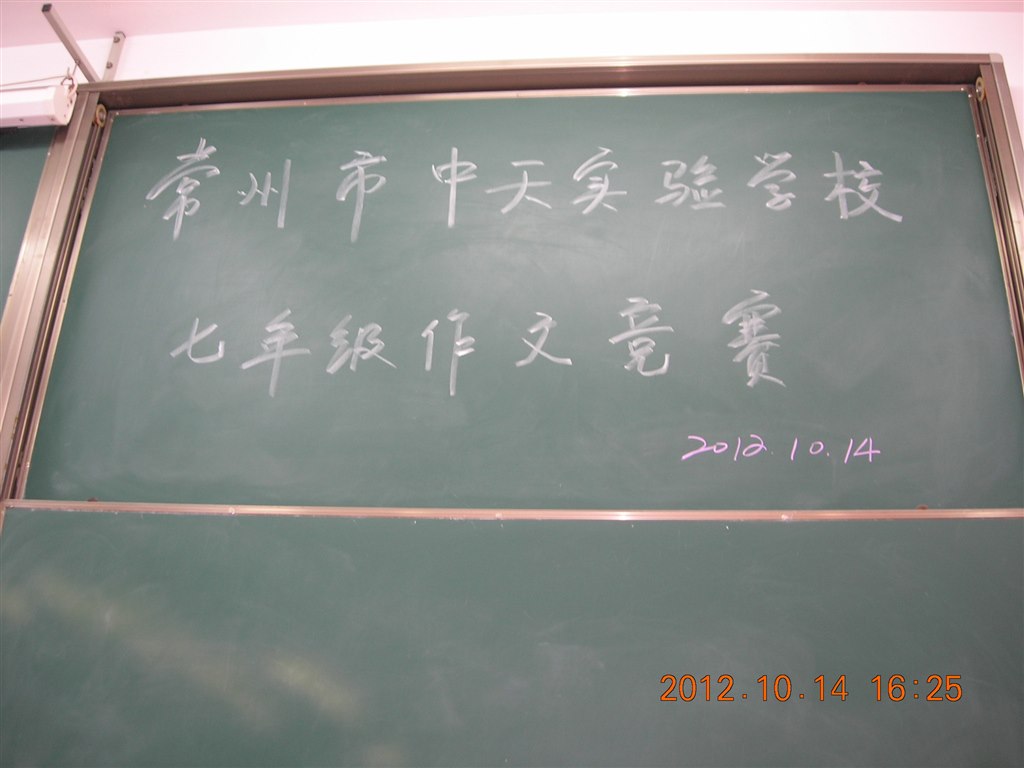 常州市中天实验学校
七年级作文竞赛
2012.10.14
2012.10.14 16:25